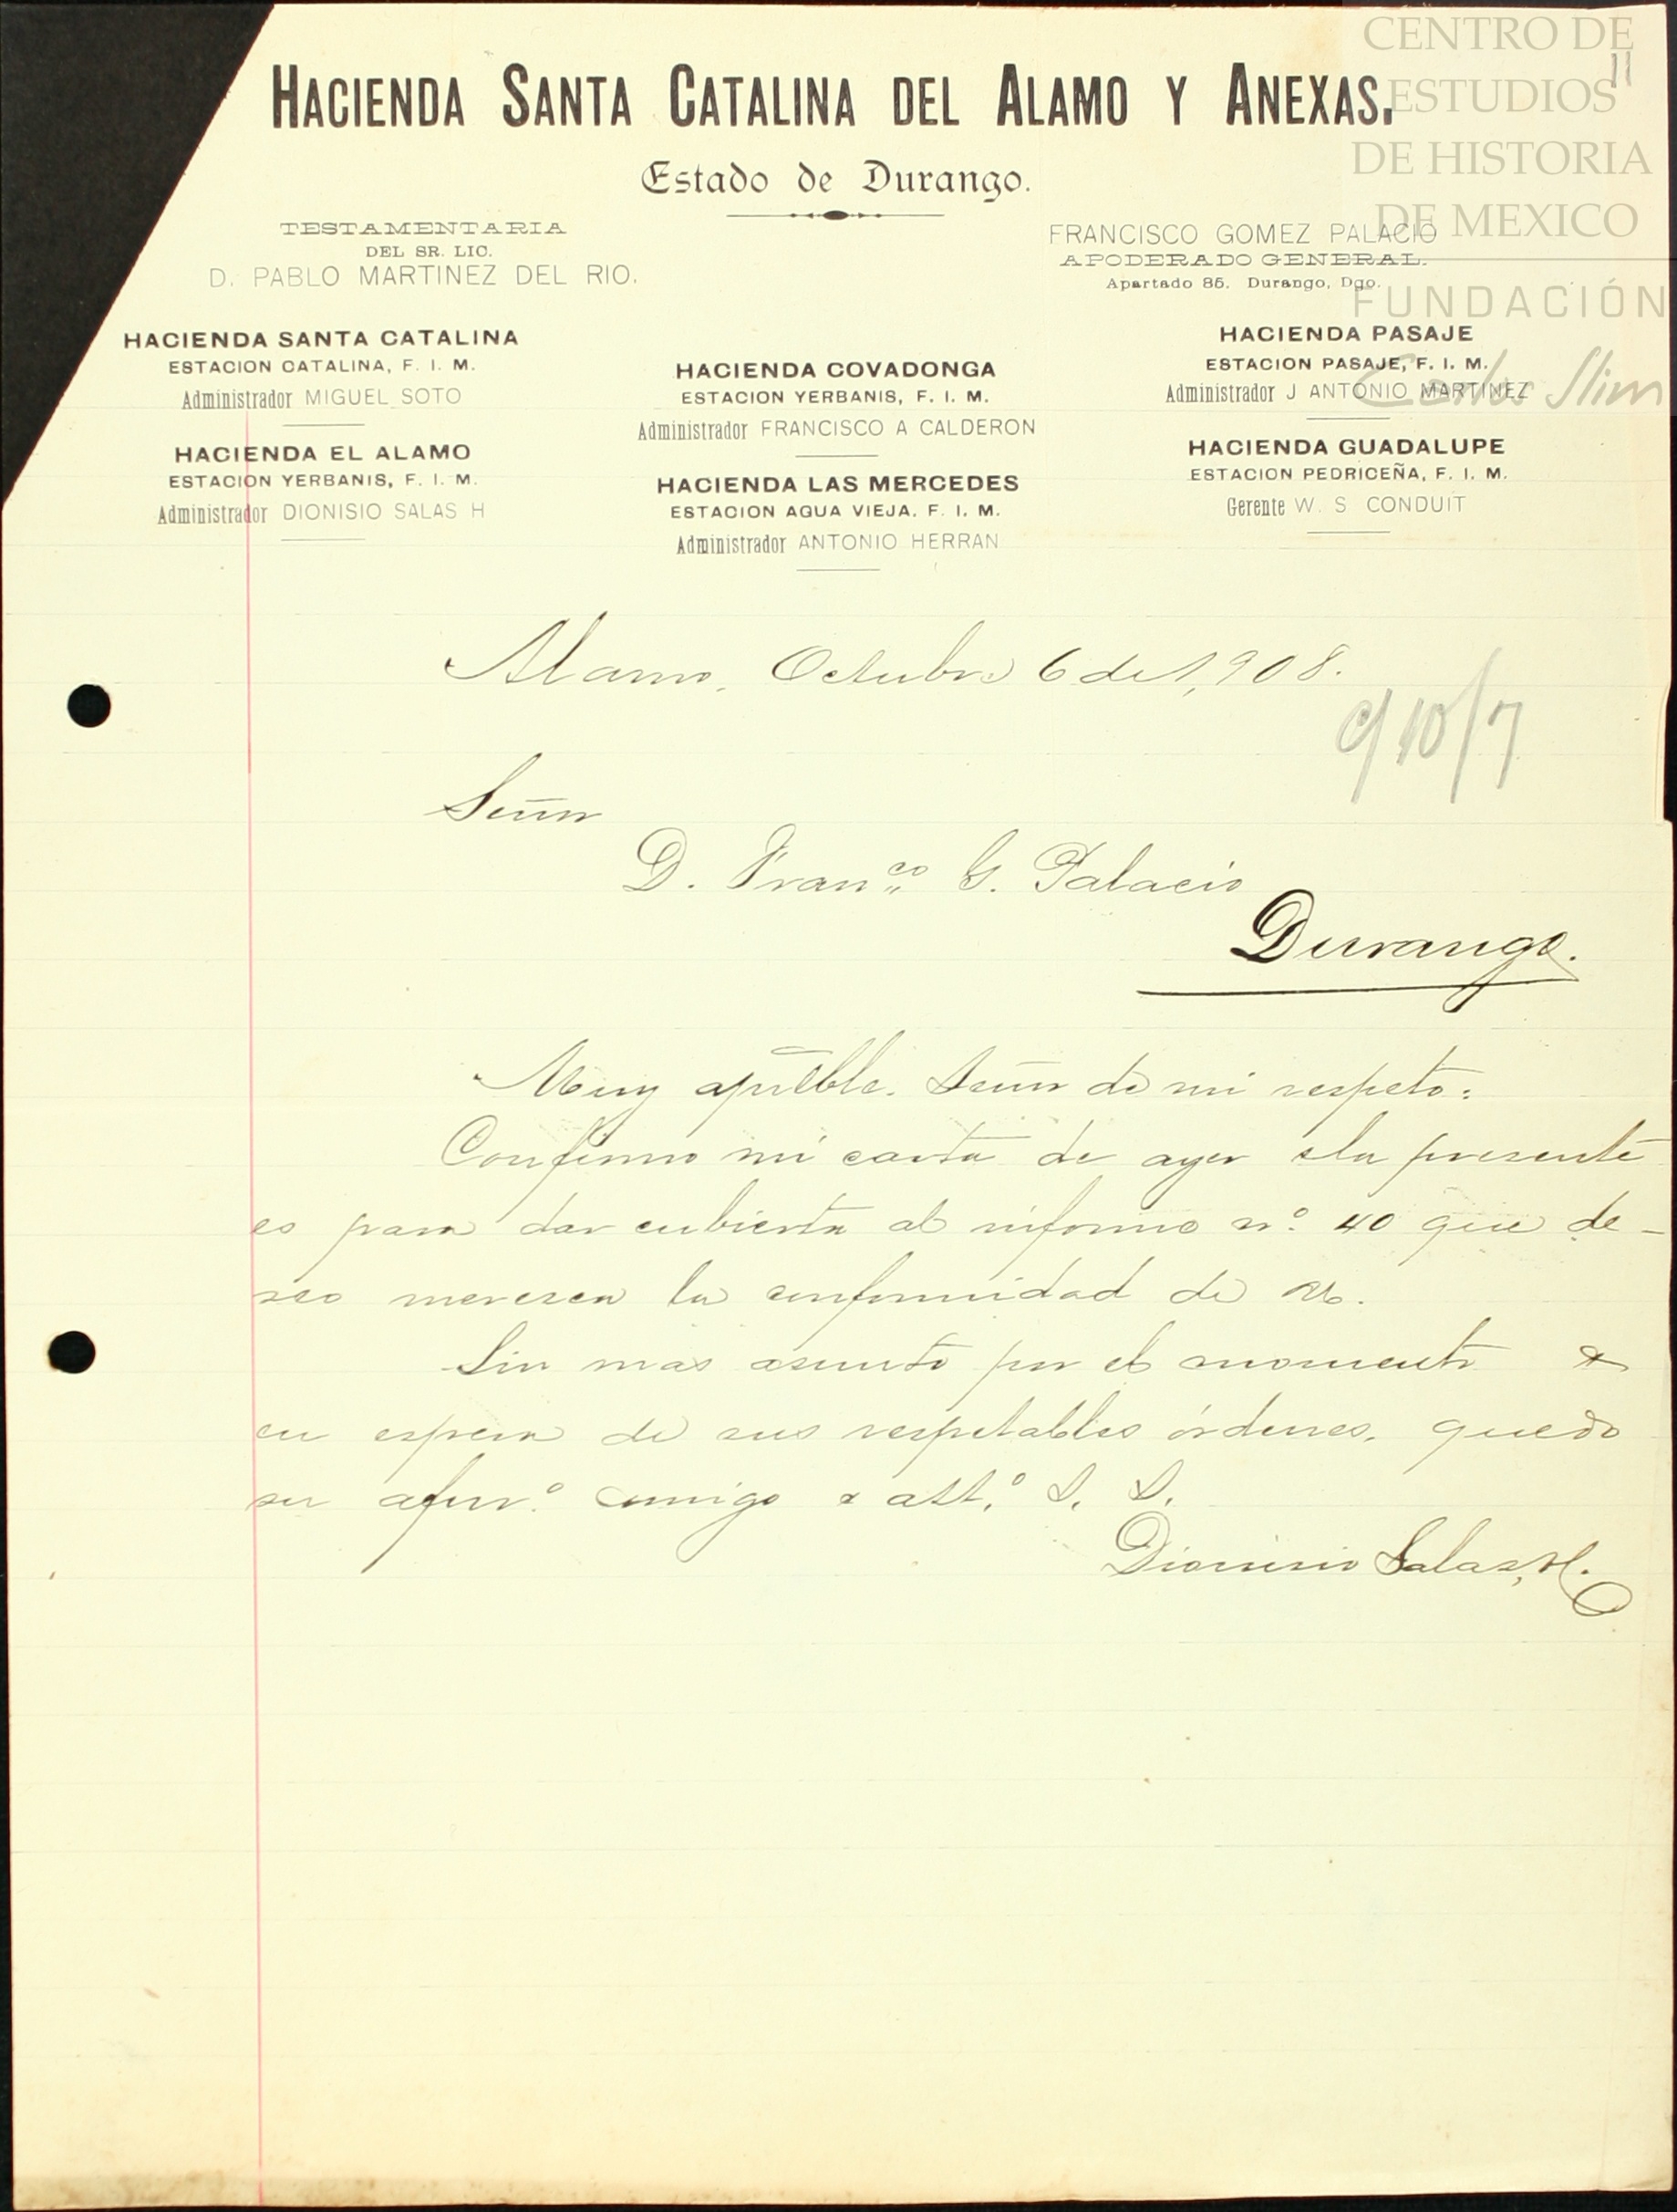 CENTRO DE
ESTUDIOS
DE HISTORIA
DE MEXICO
FUNDACIÓN
Carlos Slim
11
HACIENDA SANTA CATALINA DEL ALAMO Y ANEXAS.
Estado de Durango.
TESTAMENTARIA
DEL SR. LIC.
D. PABLO MARTINEZ DEL RIO.
FRANCISCO GOMEZ PALACIO
APODERADO GENERAL.
Apartado 85. Durango, Dgo.
HACIENDA SANTA CATALINA
ESTACION CATALINA, F. I. M.
Administrador MIGUEL SOTO
HACIENDA EL ALAMO
ESTACION YERBANIS, F. I. M.
Administrador DIONISIO SALAS H
HACIENDA COVADONGA
ESTACION YERBANIS, F. I. M.
Administrador FRANCISCO A CALDERON
HACIENDA LAS MERCEDES
ESTACION AGUA VIEJA. F. I. M.
Administrador ANTONIO HERRAN
HACIENDA PASAJE
ESTACION PASAJE, F. I. M.
Administrador J ANTONIO MARTINEZ
HACIENDA GUADALUPE
ESTACION PEDRICEÑA, F. I. M.
Gerente W. S CONDUIT
Alamo, Octubre 6 de 1,908.
c/10/7
Señor
D. Franco G. Palacio
Durango.
Muy apreble. Señor de mi respeto:
Confirmo mi carta de ayer i la presente
es para dar cubierta al informe no. 40 que de-
seo meresca la conformidad de U.
Sin mas asunto por el momento &
en espera de sus respetables órdenes, quedo
su afmo. amigo & att.o S. S.
Dionisio Salas, H.